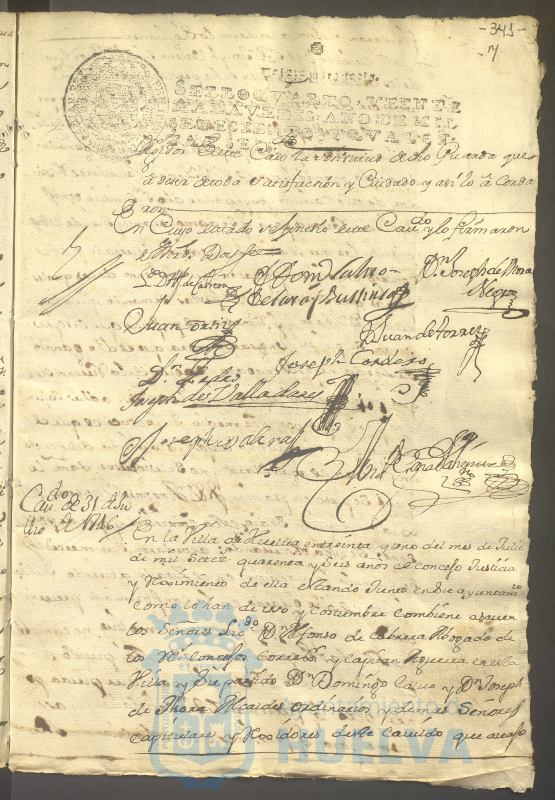 -341-
7
Veinte maravedis.
SELLO QVARTO, VEINTE
MARAVEDIS, AÑO DE MIL
SETECIENTOS Y QVAREN
TA Y SEIS.
que
a de ser de toda satisfacción y Cuidado y asi lo acorda
Ron
En Cuyo estado se feneció este Cavdo y lo firmaron
Dn Joseph de Mora
Negro
Juan Ortiz
Juan de Torres
Joseph Cordero
Joseph de Valladares
Cavdo de 31 de Ju
lio de 1746
En la Villa de Huelva en treinta y uno del mes de Julio
de mil setezs quarenta y seis años el concejo Justicia
y Rejimiento de ella estando Junto en su ayuntamto
como lo han de uso y costumbre combiene a saver
los Señores Lizdo Dn Alfonso de Cabrera Abogado de
los Rs Concejos Corregor y Capitan Aguerra en esta
Villa y su partido Dn Domingo Calvo y Dn Joseph
de Mora Alcaldes ordinarios y demas Señores
capitulares y Rexidores deste Cavildo que avajo
HUELVA